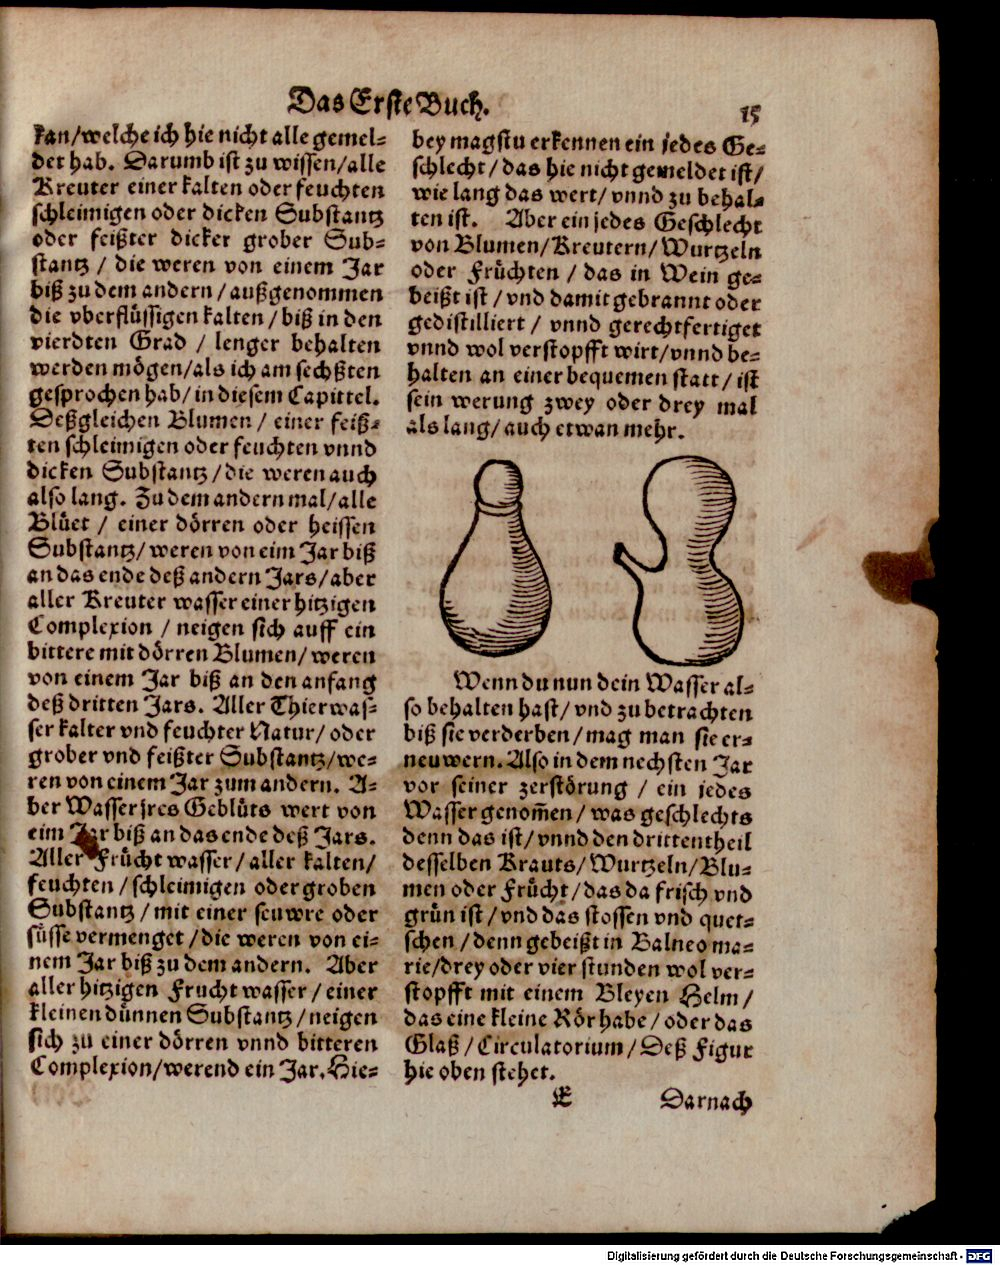 Das Erste Buch.
15
kan/welche ich hie nicht alle gemel-
det hab. Darumb ist zu wissen/alle
Kreuter einer kalten oder feuchten
schleimigen oder dicken Substantz
oder feißter dicker grober Sub-
stantz / die weren von einem Jar
biß zu dem andern / außgenommen
die vberflüssigen kalten / biß in den
vierdten Grad / lenger behalten
werden mögen/als ich am sechßten
gesprochen hab/ in diesem Capittel.
Deßgleichen Blumen / einer feiß-
ten schleimigen oder feuchten vnnd
dicken Substantz/die weren auch
also lang. Zu dem andern mal/alle
Blüet / einer dörren oder heissen
Substantz/ weren von eim Jar biß
an das ende deß andern Jars/aber
aller Kreuter wasser einer hitzigen
Complexion / neigen sich auff ein
bittere mit dörren Blumen/ weren
von einem Jar biß an den anfang
deß dritten Jars. Aller Thier was-
ser kalter vnd feuchter Natur/ oder
grober vnd feißter Substantz/we-
ren von einem Jar zum andern. A-
ber Wasser jres Geblüts wert von
eim Jar biß an das ende deß Jars.
Aller Frücht wasser / aller kalten/
feuchten / schleimigen oder groben
Substantz / mit einer seuwre oder
süsse vermenget / die weren von ei-
nem Jar biß zu dem andern. Aber
aller hitzigen Frucht wasser / einer
kleinen dünnen Substantz / neigen
sich zu einer dörren vnnd bitteren
Complexion/werend ein Jar. Hie-
bey magstu erkennen ein jedes Ge-
schlecht / das hie nicht gemeldet ist/
wie lang das wert/ vnnd zu behal-
ten ist. Aber ein jedes Geschlecht
von Blumen/Kreutern/Wurtzeln
oder Früchten / das in Wein ge-
beißt ist / vnd damit gebrannt oder
gedistilliert / vnnd gerechtfertiget
vnnd wol verstopfft wirt/vnnd be-
halten an einer bequemen statt / ist
sein werung zwey oder drey mal
als lang/ auch etwan mehr.
Wenn du nun dein Wasser al-
so behalten hast/ vnd zu betrachten
biß sie verderben / mag man sie er-
neuwern. Also in dem nechsten Jar
vor seiner zerstörung / ein jedes
Wasser genom̃en / was geschlechts
denn das ist/ vnnd den drittentheil
desselben Krauts/Wurtzeln/Blu-
men oder Frücht / das da frisch vnd
grün ist / vnd das stossen vnd quet-
schen / denn gebeißt in Balneo ma-
rie/drey oder vier stunden wol ver-
stopfft mit einem Bleyen Helm /
das eine kleine Rör habe / oder das
Glaß / Circulatorium / Deß Figur
hie oben stehet.
E
Darnach
Digitalisierung gefördert durch die Deutsche Forschungsgemeinschaft - DFG